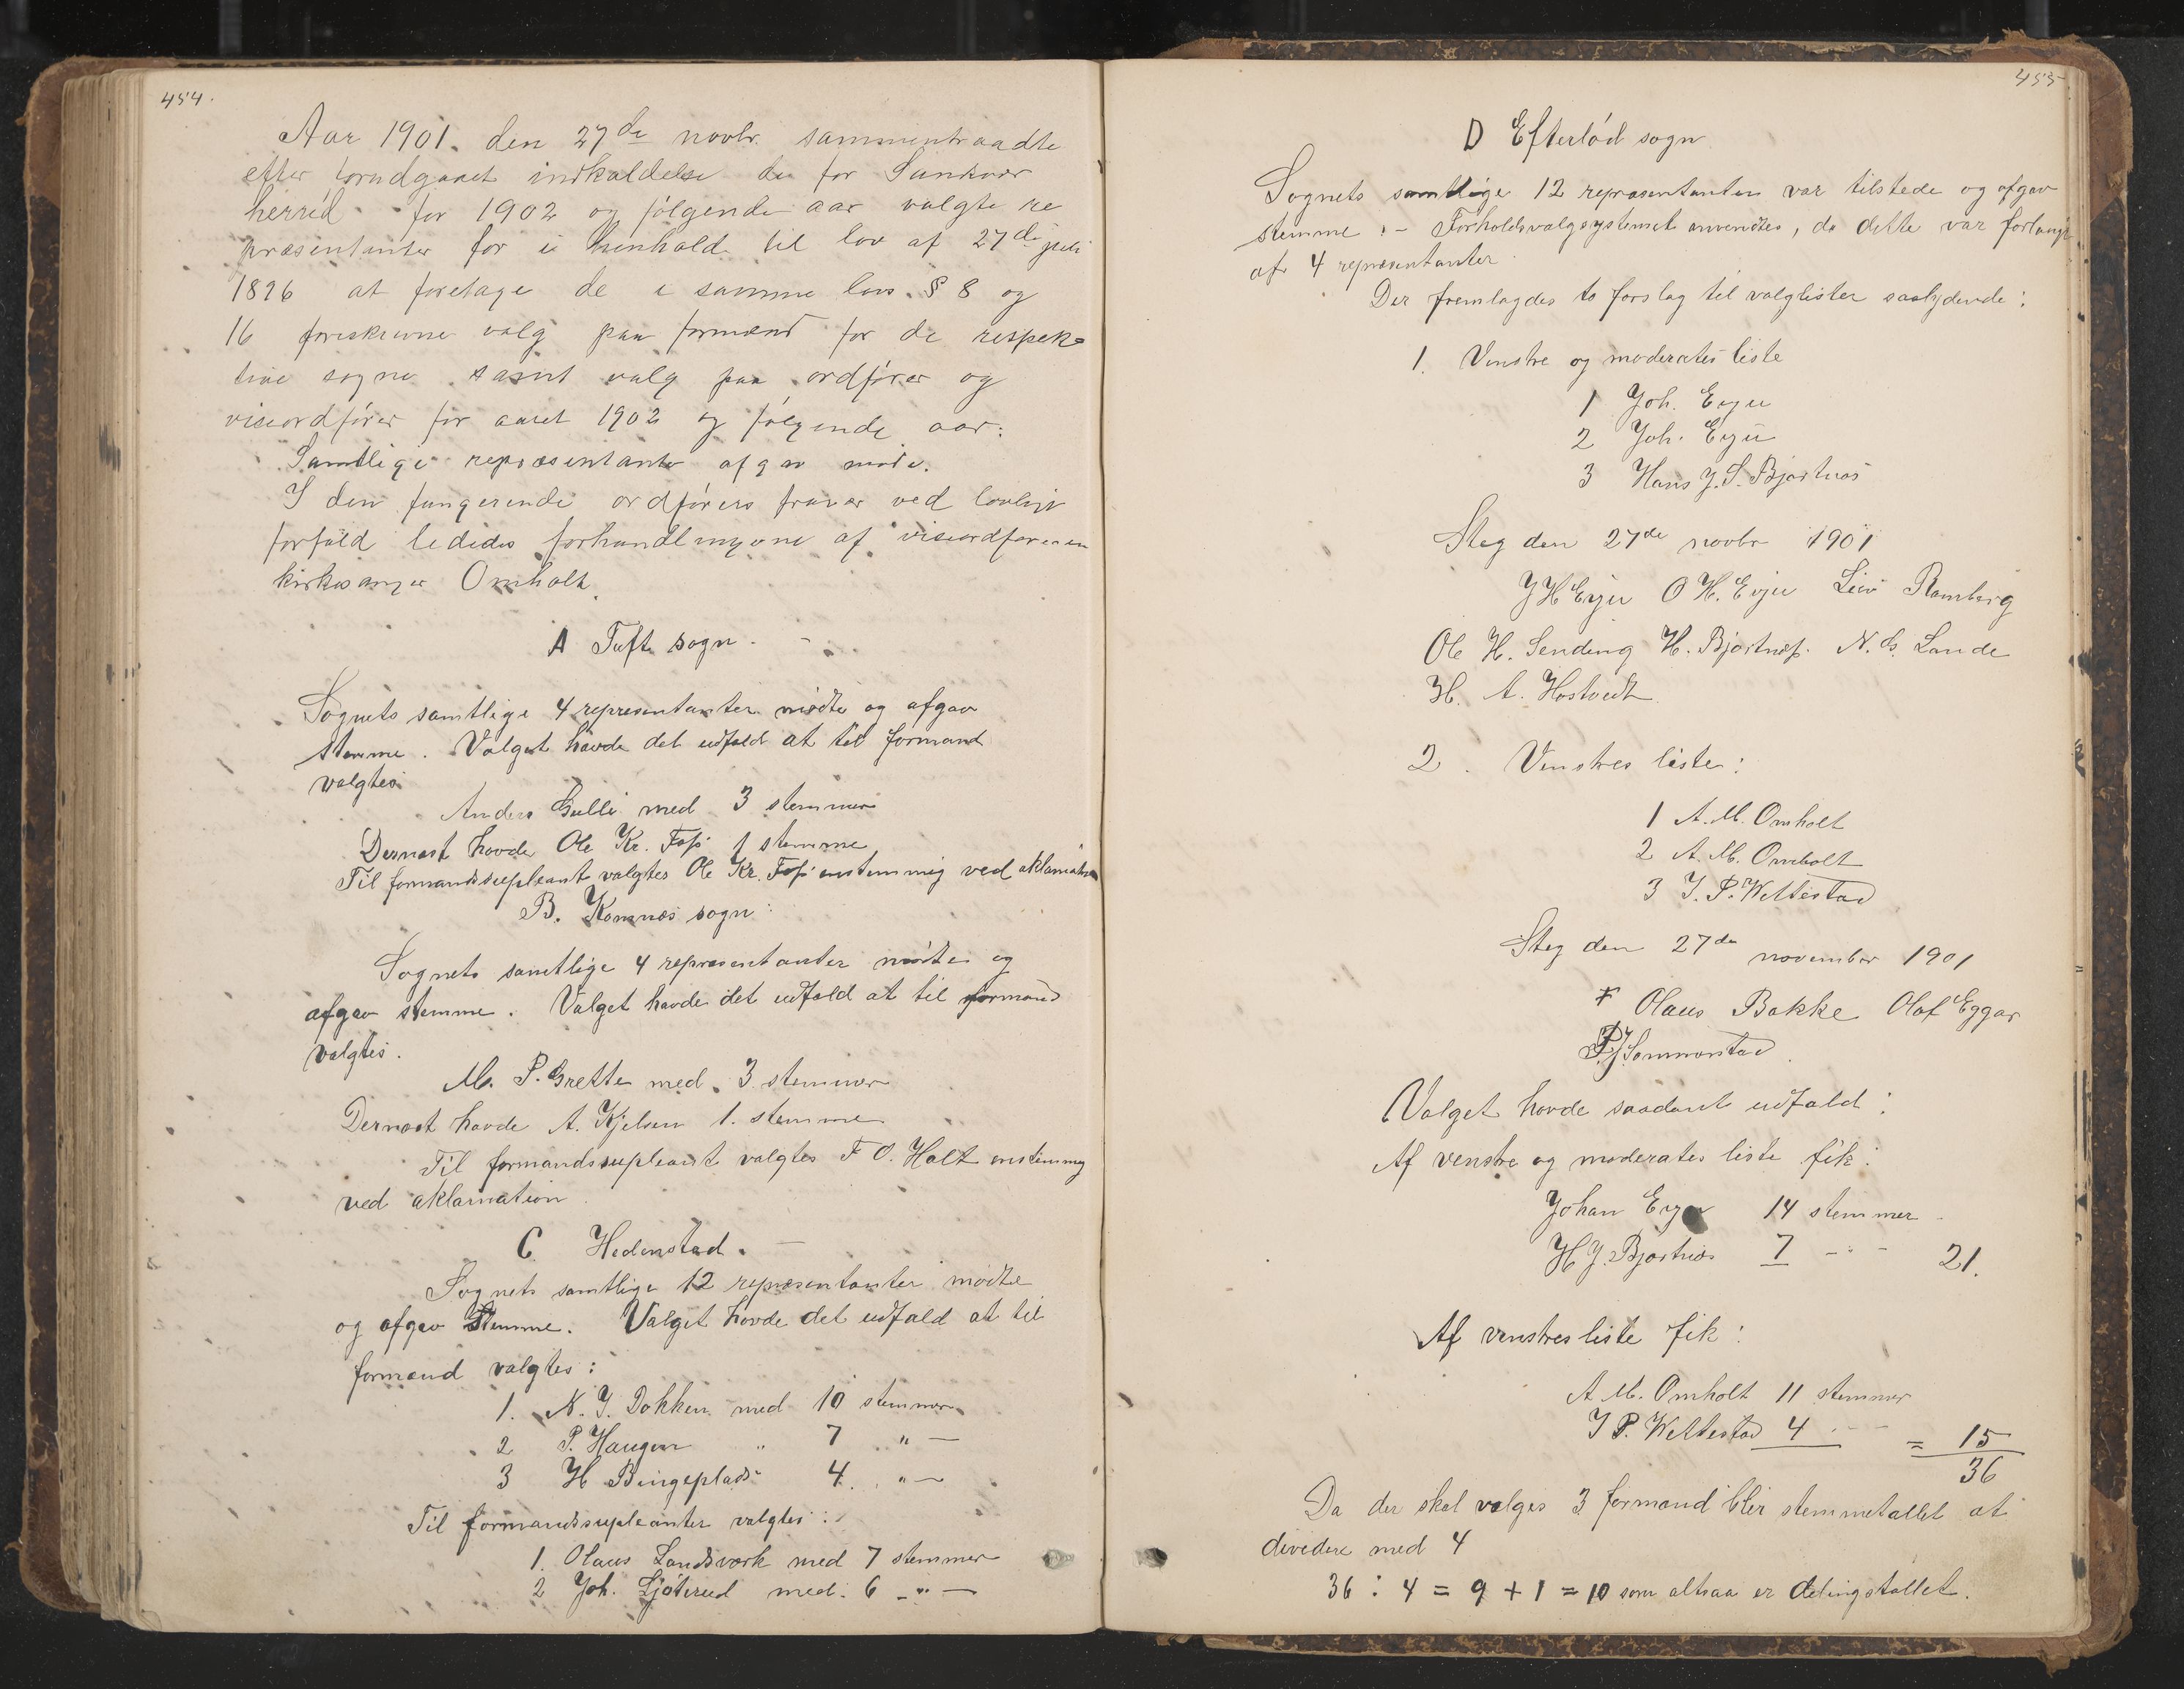 454.
Aar 1901. den 27de novbr. sammentraadte
efter forudgaaet indkaldelse de for Sandsvær
herred for 1902 og følgende aar valgte re
præsentanter for i henhold til lov af 27de juli
1896 at foretage de i samme lovs § 8 og
16 foreskrevne valg paa formænd for de respek-
tive sogne samt valg paa ordfører og
viseordfører for aaret 1902 og følgende aar:
Samtlige repræsentanter afgav møde.
I den fungerende ordførers fravær ved lovligt
forfald lededes forhandlingerne af viseordføreren
kirkesanger Omholt.
A Tuft sogn. -
Sognets samtlige 4 representanter mødte og afgav
stemme. Valget havde det udfald at til formand
valgtes
Anders Gulli med 3 stemmer
Dernæst havde Ole Kr. Foss 1 stemme
Til formandssupleant valgtes Ole Kr. Foss enstemmig ved aklamation
B. Komnæs sogn:
Sognets samtlige 4 repræsentanter mødte og
afgav stemme. Valget havde det udfald at til formand
valgtes.
M. P. Grette med 3 stemmer
Dernæst havde A. Kjelsen 1. stemme
Til formandssupleant valgtes F O. Holt enstemmig
ved aklamation
C. Hedenstad. -
Sognets samtlige 12 repræsentanter mødte
og afgav stemme. Valget havde det udfald at til
formænd valgtes:
1. N. J. Dokken med 10 stemmer
2 P. Haugen " 7 " —
3 H Bingeplads 4. " —
Til formandssupleanter valgtes:
1. Olaus Landsværk med 7 stemmer
2 Joh. Ljøterud med: 6 - " —
455
D Efteløt sogn
Sognets samtlige 12 repræsentanter var tilstede og afgav
stemme. - Forholdsvalgsystemet anvendtes, da dette var forlangt
af 4 repræsentanter.
Der fremlagdes to forslag til valglister saalydende:
1. Venstre og moderates liste
1 Joh. Evju
2 Joh. Evju
3 Hans J. S. Bjørtnæs
Steg den 27de novbr 1901
J H Evju O H. Evju Ramberg
Ole H. Sending H. Bjørtnæs. N. Lande
H. A. Hostvedt
2. Venstres liste:
1 A. M. Omholt
2 A. M. Omholt
3 J. P. Wettestad
Steg den 27de november 1901
Olaus Bakke Olaf Eggar
Valget havde saadant udfald:
Af venstre og moderates liste fik:
Johan Evju 14 stemmer -
H J. Bjørtnæs 7 - " - 21.
Af venstres liste fik:
A M. Omholt 11 stemmer
J P. Wettestad 4 - - = 15
36
Da der skal vælges 3 formænd blir stemmetallet at
dividere med 4
36 : 4 = 9 + 1 = 10 som altsaa er delingstallet.